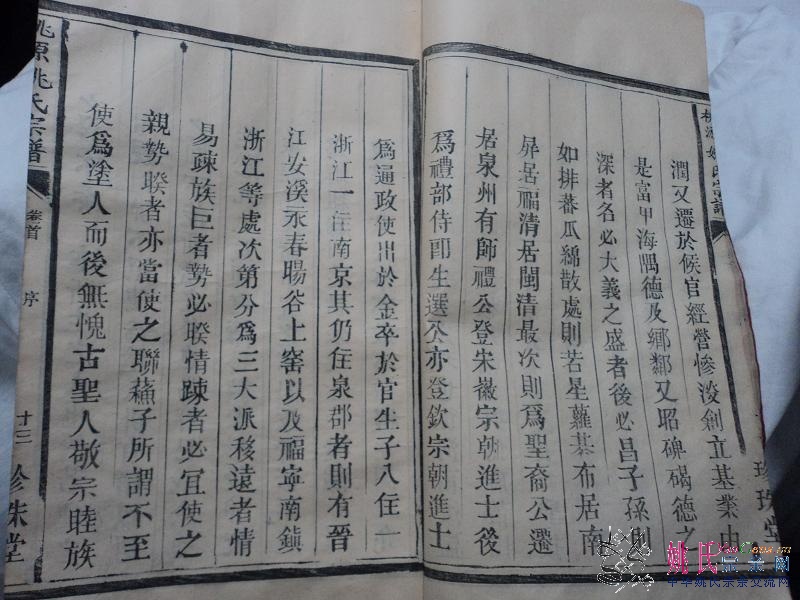 桃源姚氏宗譜
珍珠堂
潤又遷於候官經營慘淡創立基業由
是富甲海隅德及鄉鄰又昭碑碣德之
深者名必大義之盛者後必昌子孫則
如排蕃瓜綿散處則若星蘿碁布居南
屏居福清居閩清最次則爲聖裔公遷
居泉州有師禮公登朱徽宗朝進士後
爲禮部侍郎生選公亦登欽宗朝進士
爲通政使出於金卒於官生子八住一
浙江一住南京其仍住泉郡者則有晉
江安溪永春暘谷上窑以及福寧南鎮
浙江等處次第分爲三大派移遠者情
易疎族巨者勢必暌情疎者必宜使之
親勢暌者亦當使之聯蘓子所謂不至
使爲塗人而後無愧古聖人敬宗睦族
桃源姚氏宗譜
卷首
序
十三
珍珠堂
姚氏宗亲网
中华姚氏宗亲交流网